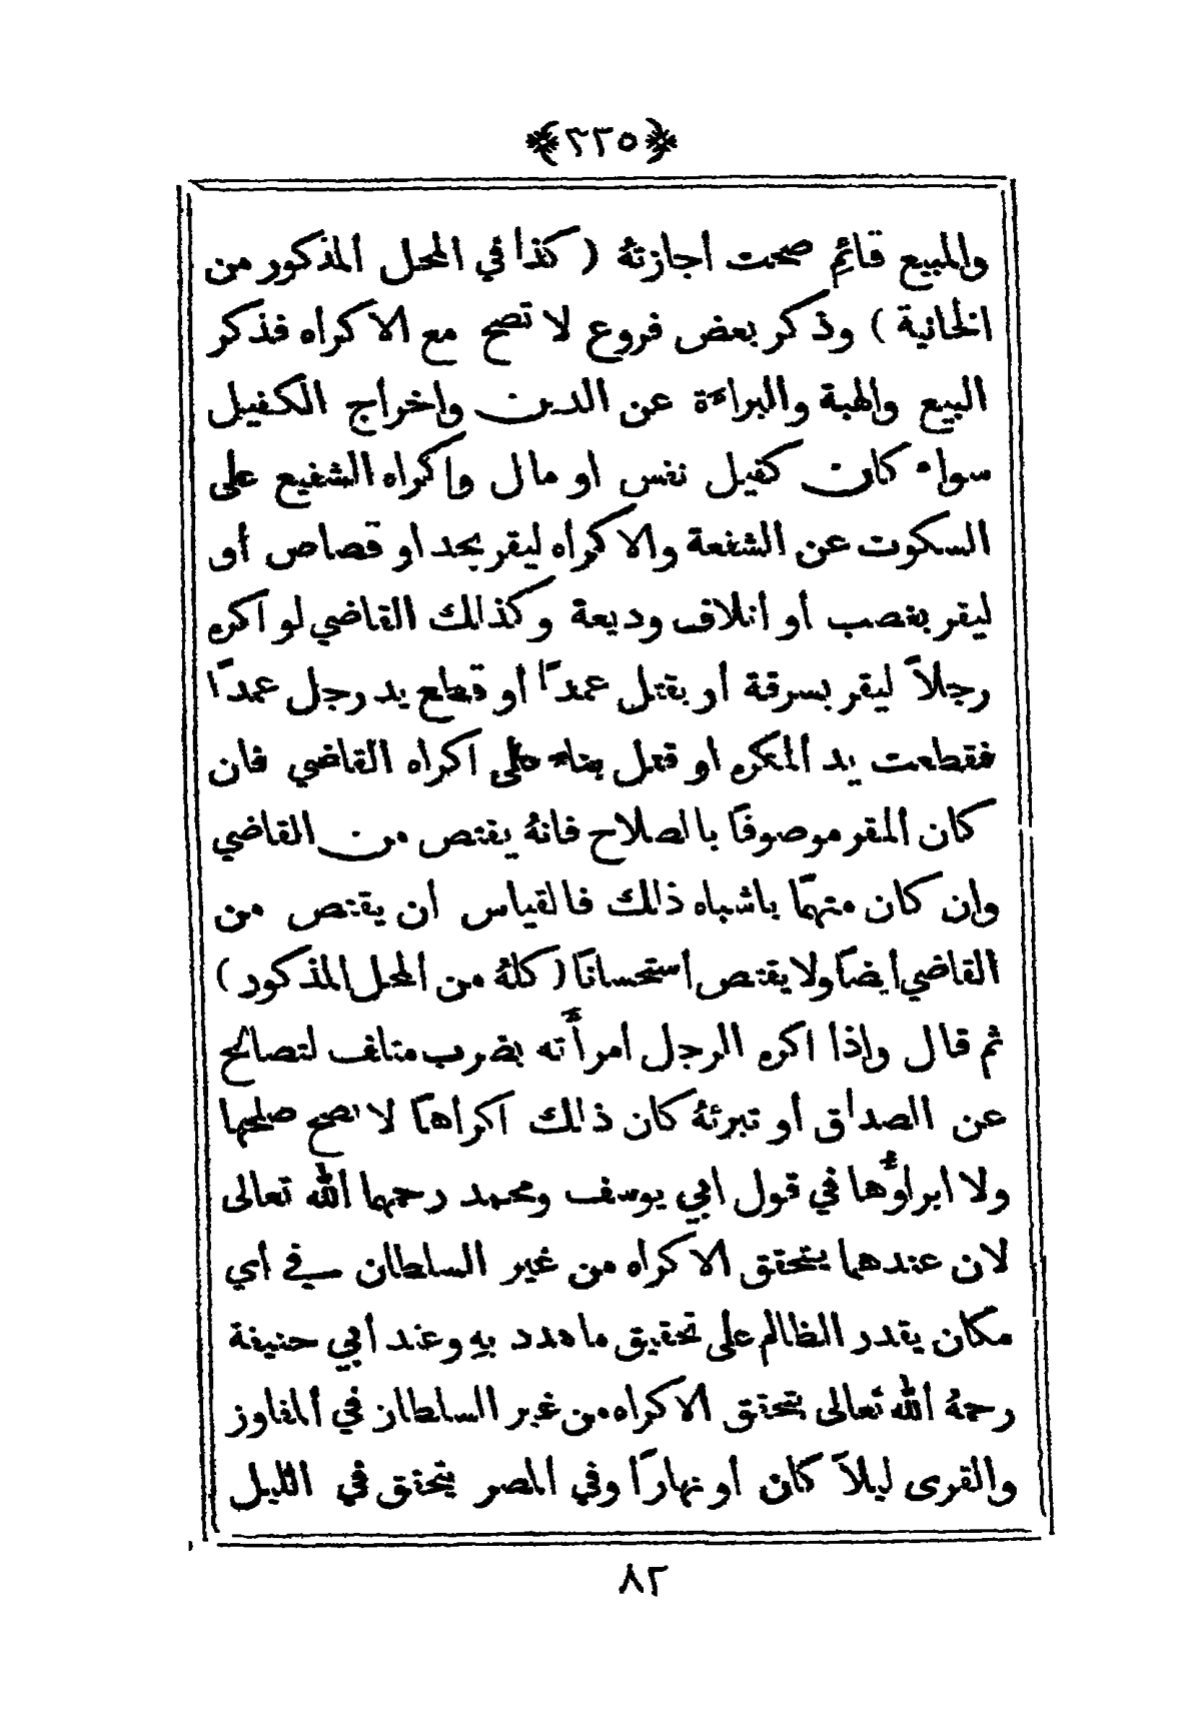 ﴿٢٢٥﴾
والمبيع قائمِ صحت اجازتهُ ( كذا في المحل المذكور من
الخانية ) وذكر بعض فروع لا تصح مع الاكراه فذكر
البيع والهبة والبراءة عن الدين وإخراج الكفيل
سواء كان كفيل نفس او مال وإكراه الشفيع على
السكوت عن الشفعة والاكراه ليقر بحد او قصاص أو
ليقر بغصب أو اتلاف وديعة وكذلك القاضي لو اكره
رجلاً ليقر بسرقة أو بقتل عمداً أو قطع يد رجل عمداً
فقطعت يد المكره او قتل بناء على اكراه القاضي فان
كان المقر موصوفًا بالصلاح فانهُ يقتص من القاضي
وان كان متهمًا باشباه ذلك فالقياس ان يقتص من
القاضي أيضًا ولا يقتص استحسانًا ( كلهُ من المحل المذكور )
ثم قال وإذا اكره الرجل امرأَته بضرب متلف لتصالح
عن الصداق أو تبرئهُ كان ذلك اكراهًا لا يصح صلحها
ولا ابراوُّها في قول ابي يوسف ومحمد رحمهما الله تعالى
لان عندهما يتحقق الاكراه من غير السلطان في أي
مكان يقدر الظالم على تحقيق ما هدد بهِ وعند ابي حنيفة
رحمهُ الله تعالى يتحقق الاكراه من غير السلطان في المفاوز
والقرى ليلاً كان أو نهارًا وفي المصر يتحقق في الليل
٨٢